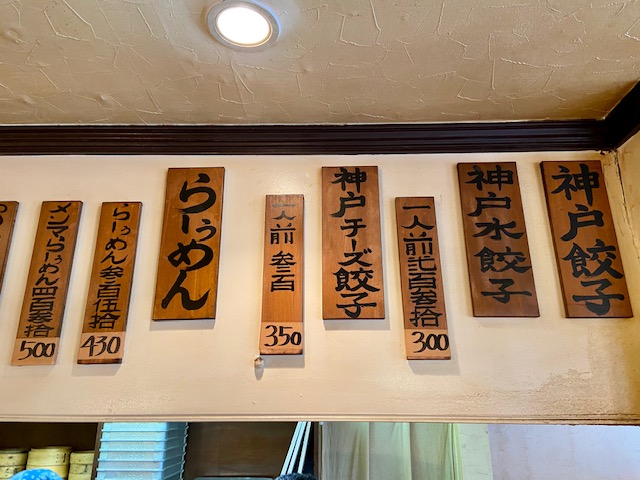 神戸餃子
神戸水餃子
一人前弍百参拾
300
神戸チーズ餃子
一人前 参百
350
らぅめん
らぅめん参百伍拾
430
メンマらぅめん四百参拾
500